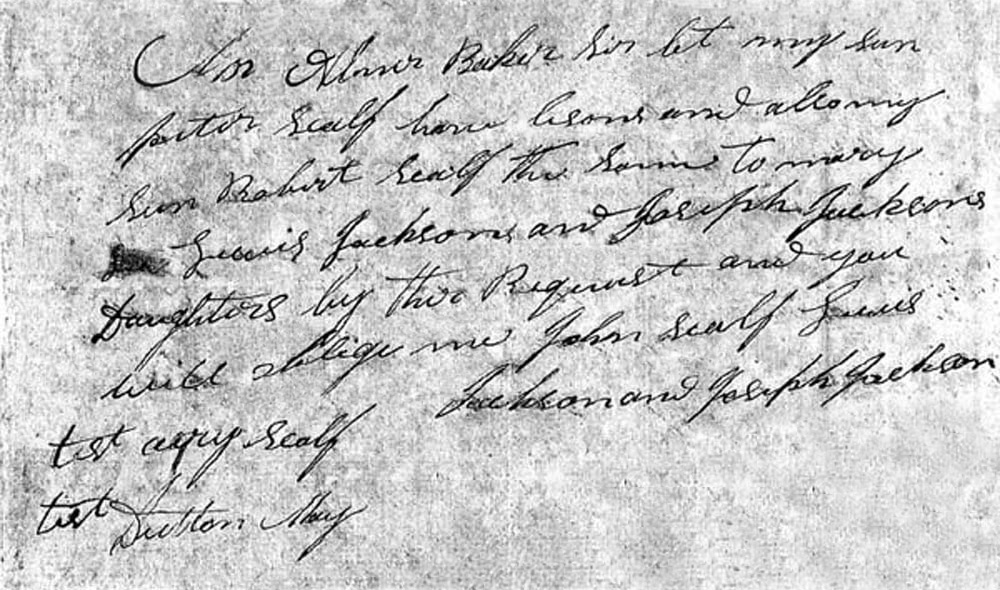 Abner Baker Sir let my sun
peter Scalf have lisons and allso my
sun Robert Scalf the same to mary
Lewis Jacksons and Joseph Jacksons
Daughters by the Request and you
will oblige me John Scalf Lewis
Jackson and Joseph Jackson
test Scalf
test Dutton May